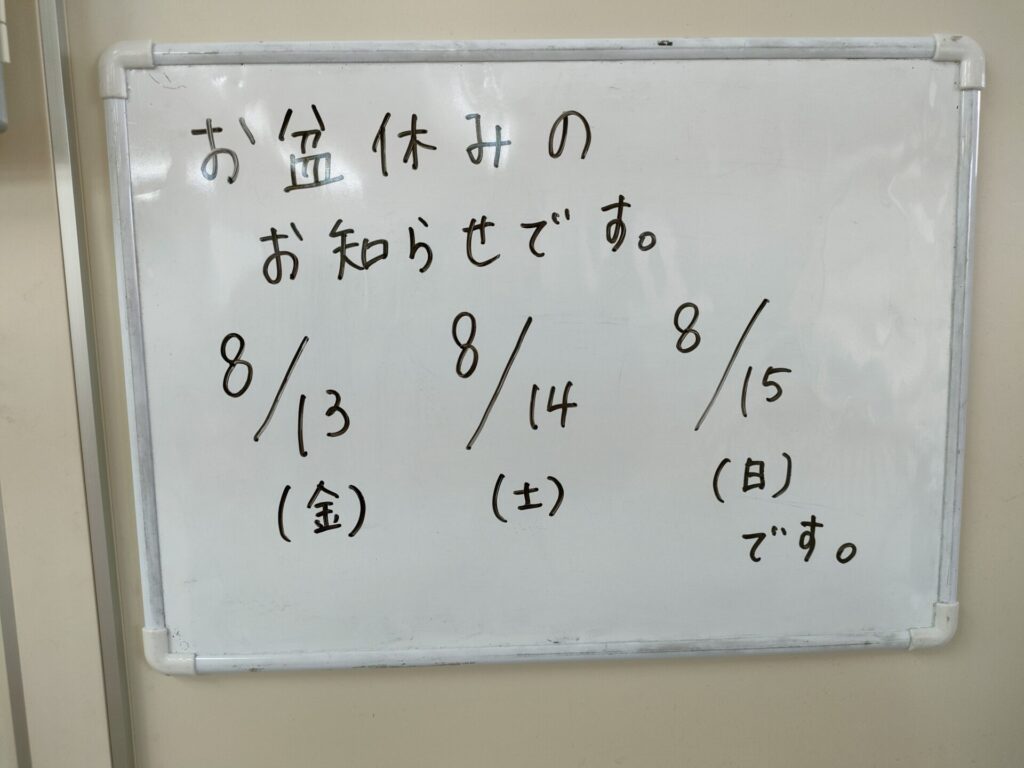 お盆休みの
お知らせです。
8/13 8/14 8/15
(金) (土) (日)
です。